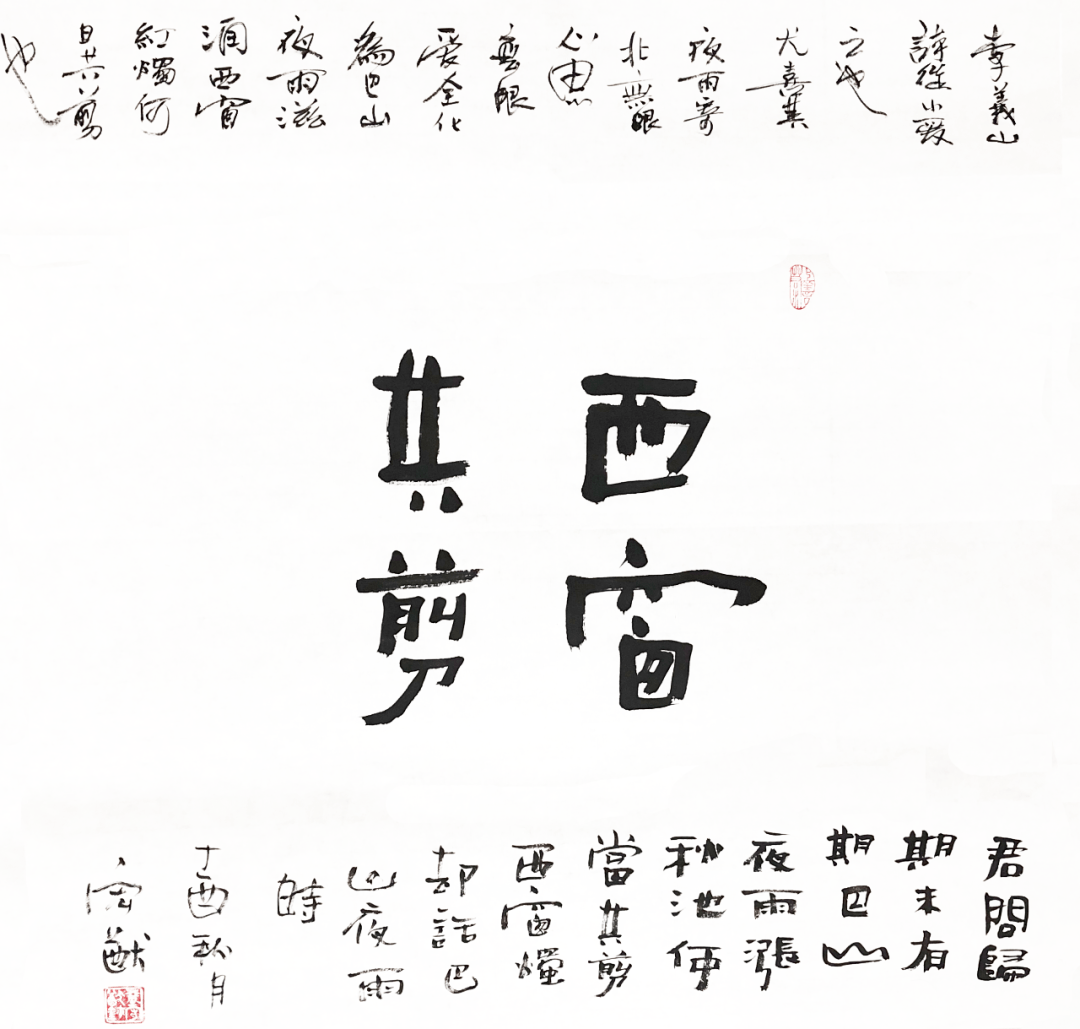 李義山
詩從小愛
之也
尤喜其
夜雨寄
北無限
心思
無限
愛全化
為巴山
夜雨滋
潤西窗
紅燭何
日共剪
也
西窗
共剪
君問歸
期未有
期巴山
夜雨漲
秋池何
當共剪
西窗燭
却話巴
山夜雨
時
丁酉秋月